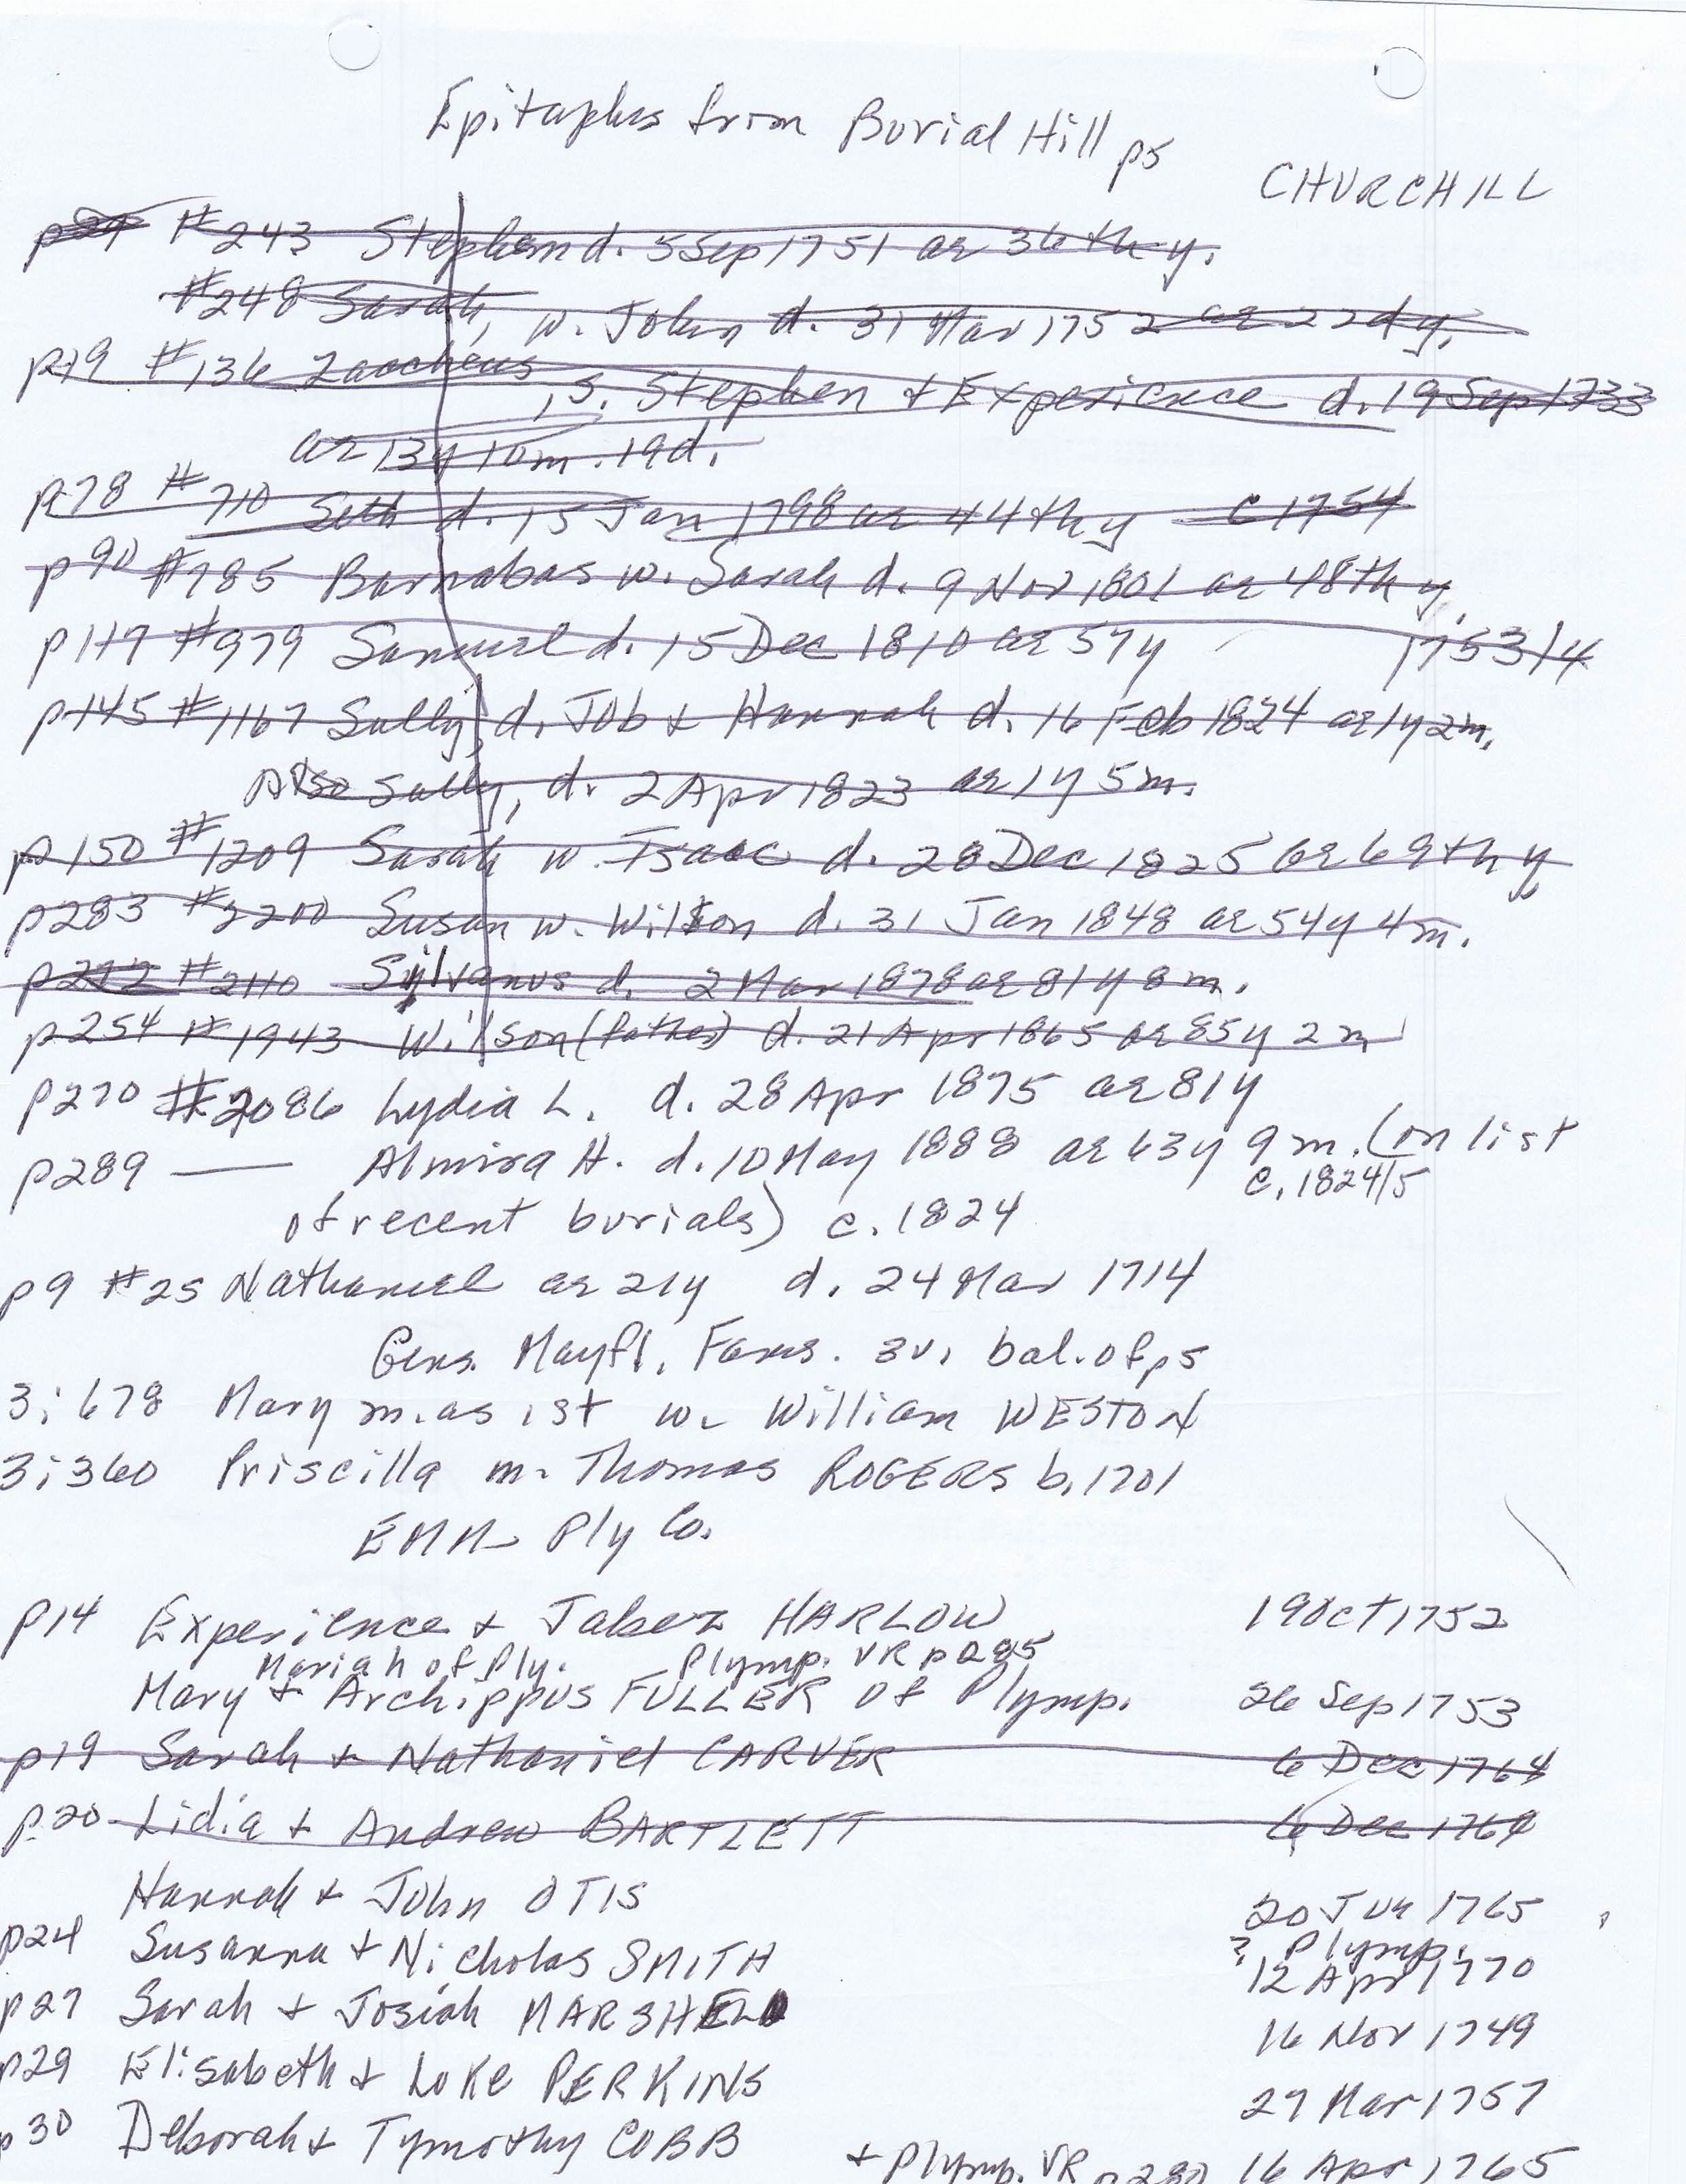 Epitaphs from Burial Hill p5
CHURCHILL
#243 Stephen d. 5 Sep 1751 ae 36th y.
#248 Sarah, w. John d. 31 Mar 1752 ae 22d y.
p19 #136 Zaccheus, s. Stephen + Experience d. 19 Sep 1733
ae 13y 10m. 19d.
p78 #710 Seth d. 15 Jan 1798 ae 44th y c 1754
p90 #785 Barnabas w. Sarah d. 9 Nov 1801 ae 48th y.
p119 #979 Samuel d. 15 Dec 1810 ae 57y 1753/4
p145 #1167 Sally, d. Job + Hannah d. 16 Feb 1824 ae 1y 2m.
Also Sally, d. 2 Apr 1823 ae 1y 5m.
p150 #1209 Sarah w. Isaac d. 28 Dec 1825 ae 69th y
p283 #2200 Susan w. Wilson d. 31 Jan 1848 ae 54y 4m.
p272 #2110 Sylvanus d. 2 Mar 1878 ae 81y 8m.
p254 #1943 Wilson (father) d. 21 Apr 1865 ae 85y 2m
p270 #2086 Lydia L. d. 28 Apr 1875 ae 81y
p289 — Almira H. d. 10 May 1888 ae 63y 9m. (on list
c. 1824/5
of recent burials) c. 1824
p9 #25 Nathaniel ae 21y d. 24 Mar 1714
Gens. Mayfl. Fams. 3v. bal. of p5
3:678 Mary m. as 1st w. William WESTON
3:360 Priscilla m. Thomas ROGERS b. 1701
EMM Ply Co.
p14 Experience + Jabez HARLOW 19 Oct 1752
Mariah of Ply. Plymp. VR p285
Mary + Archippus FULLER of Plymp. 26 Sep 1753
p19 Sarah + Nathaniel CARVER 6 Dec 1764
p20 Lidia + Andrew BARTLETT 6 Dec 1764
Hannah + John OTIS 20 Jun 1765
? Plymp.
p24 Susanna + Nicholas SMITH 12 Apr 1770
p27 Sarah + Josiah MARSHELL 16 Nov 1749
p29 Elisabeth + Luke PERKINS 27 Mar 1757
p30 Deborah + Tymothy COBB + Plymp. VR p280 16 Apr 1765